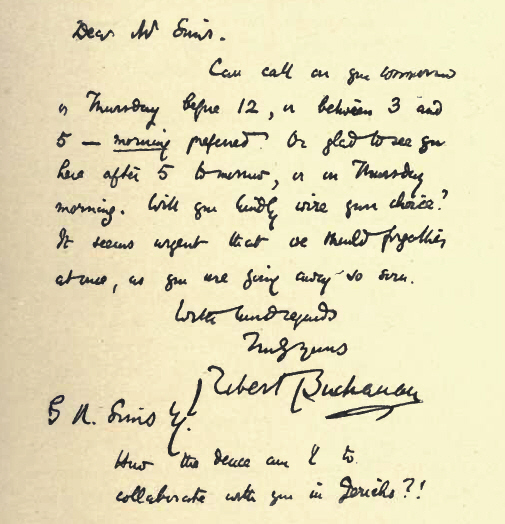 Dear Mr Sims.
Can call on you tomorrow
or Thursday before 12, or between 3 and
5 — morning preferred? Or glad to see you
here after 5 tomorrow, or on Thursday
morning. Will you kindly wire your choice?
It seems urgent that we should forgather
at once, as you are going away so soon.
With kind regards
Truly yours
Robert Buchanan
G R. Sims
How the deuce am I to
collaborate with you in Jericho?!